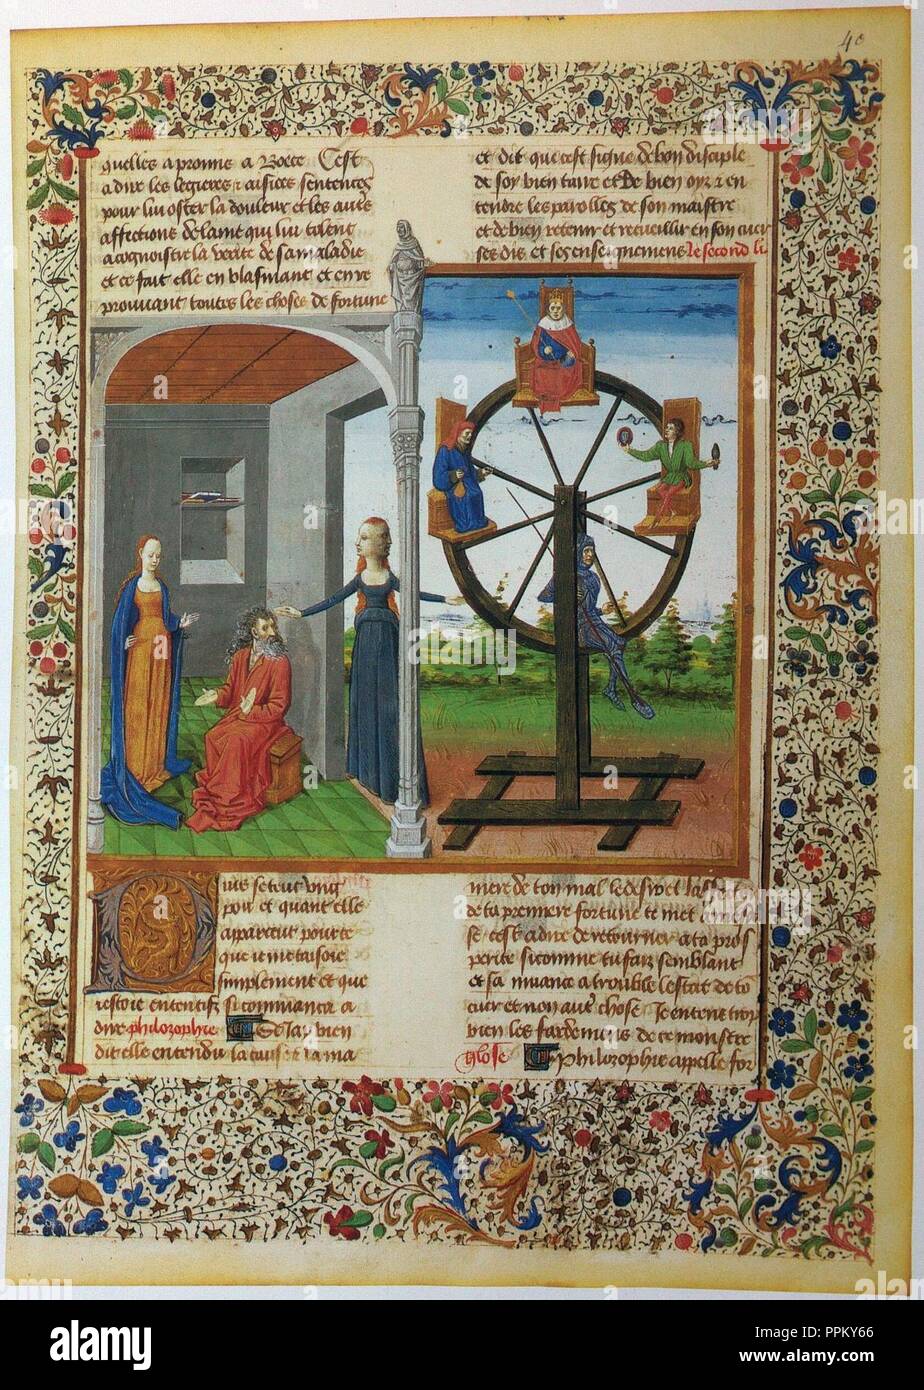 40
quelles a promis a Boece Cest
a dire les legieres & aisiees sentences
pour luy oster la douleur et les aut'es
affections de lame qui lui tolent
a cognoistre la verite de sa maladie
et ce fait elle en blasmant et en re
prouvant toutes les choses de fortune
et dit que cest signe de bon disciple
de soy bien taire et de bien oyr & en
tendre les parolles de son maistre
et de bien retenir et recueillir en son cuer
ses dis et ses enseignemens le second li
Puis se teut ung
pou et quant elle
apparceut pource
que ie me taisoie
simplement et que
restoie ententif si commanca a
dire philozophie Se Jay bien
dit elle entendu la cause et la ma
niere de ton mal le desir et
de ta premiere fortune te met
se cest a dire de retourner a ta pros
perite si comme tu faiz semblant
et sa muance a trouble lestat de to
cuer et non autre chose Je entens tres
bien les fardemens de ce monstre
Glose Philozophie appelle for
alamy
Image ID: PPKY66
www.alamy.com